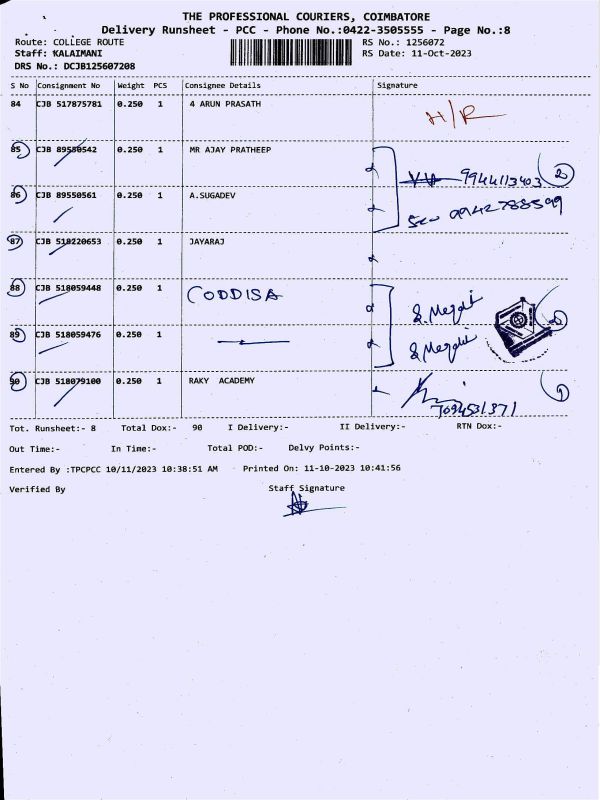 THE PROFESSIONAL COURIERS, COIMBATORE
Delivery Runsheet - PCC - Phone No.:0422-3505555 - Page No.:8
Route: COLLEGE ROUTE RS No.: 1256072
Staff: KALAIMANI RS Date: 11-Oct-2023
DRS No.: DCJB125607208
S No Consignment No Weight PCS Consignee Details Signature
84 CJB 517875781 0.250 1 4 ARUN PRASATH H/R
85 CJB 89550542 0.250 1 MR AJAY PRATHEEP 9944113403 2
86 CJB 89550561 0.250 1 A.SUGADEV 09942788599
87 CJB 518220653 0.250 1 JAYARAJ
88 CJB 518059448 0.250 1 CODDISA
89 CJB 518059476 0.250 1
90 CJB 518079100 0.250 1 RAKY ACADEMY 1
7094531371
Tot. Runsheet:- 8 Total Dox:- 90 I Delivery:- II Delivery:- RTN Dox:-
Out Time:- In Time:- Total POD:- Delvy Points:-
Entered By :TPCPCC 10/11/2023 10:38:51 AM Printed On: 11-10-2023 10:41:56
Verified By Staff Signature